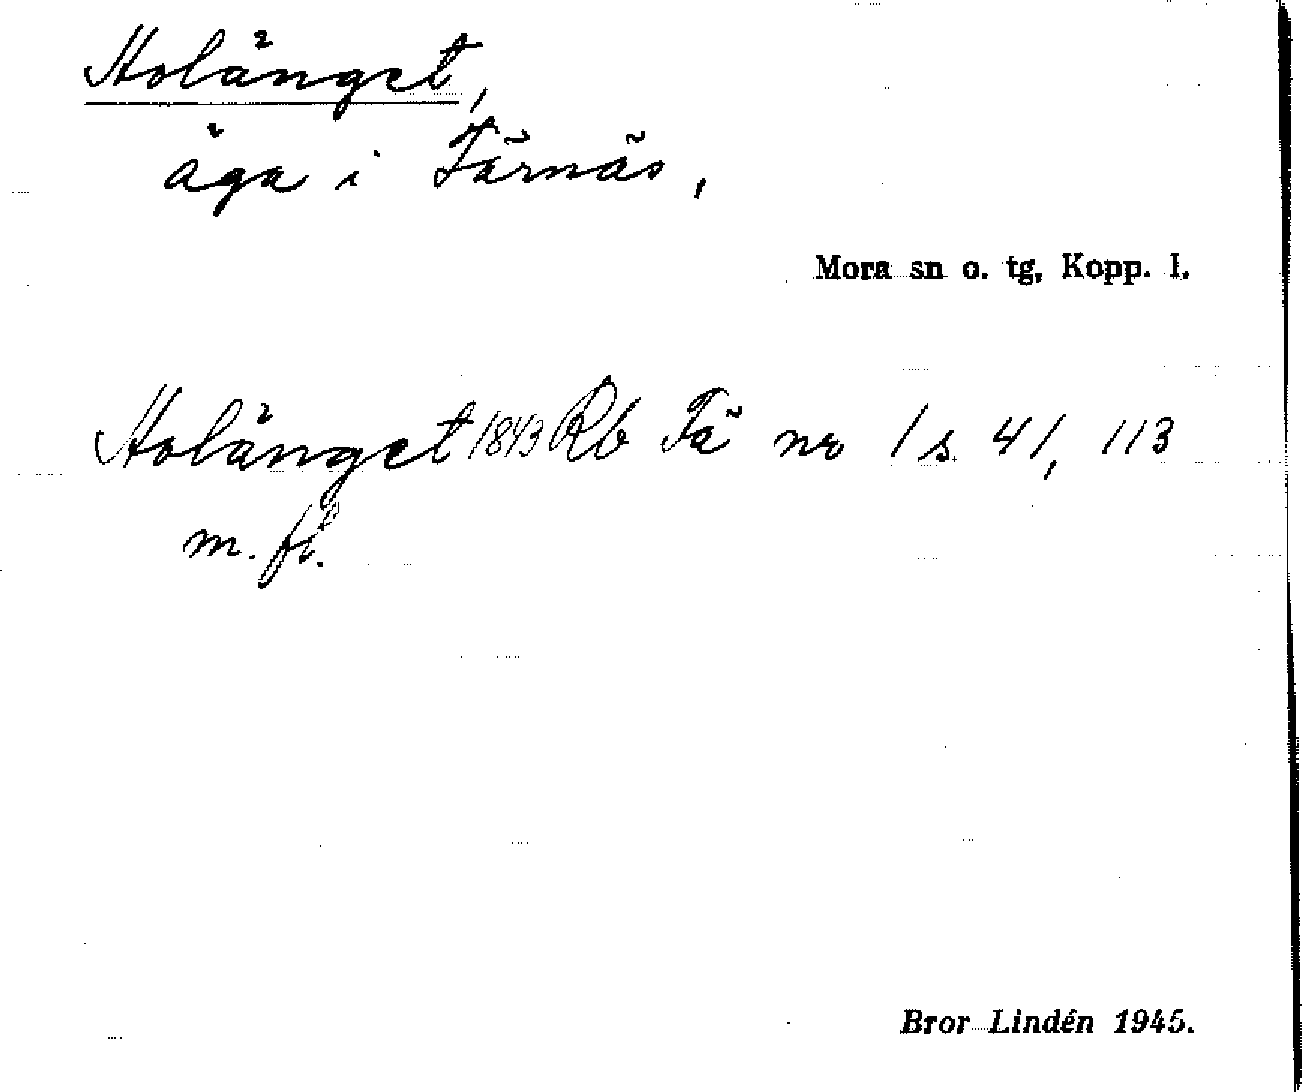 Holänget,
äga i Färnäs,
Mora sn o. tg, Kopp. l.
Holänget 1843 Rb Fä nr 1 s. 41, 113
m. fl.
Bror Lindén 1945.